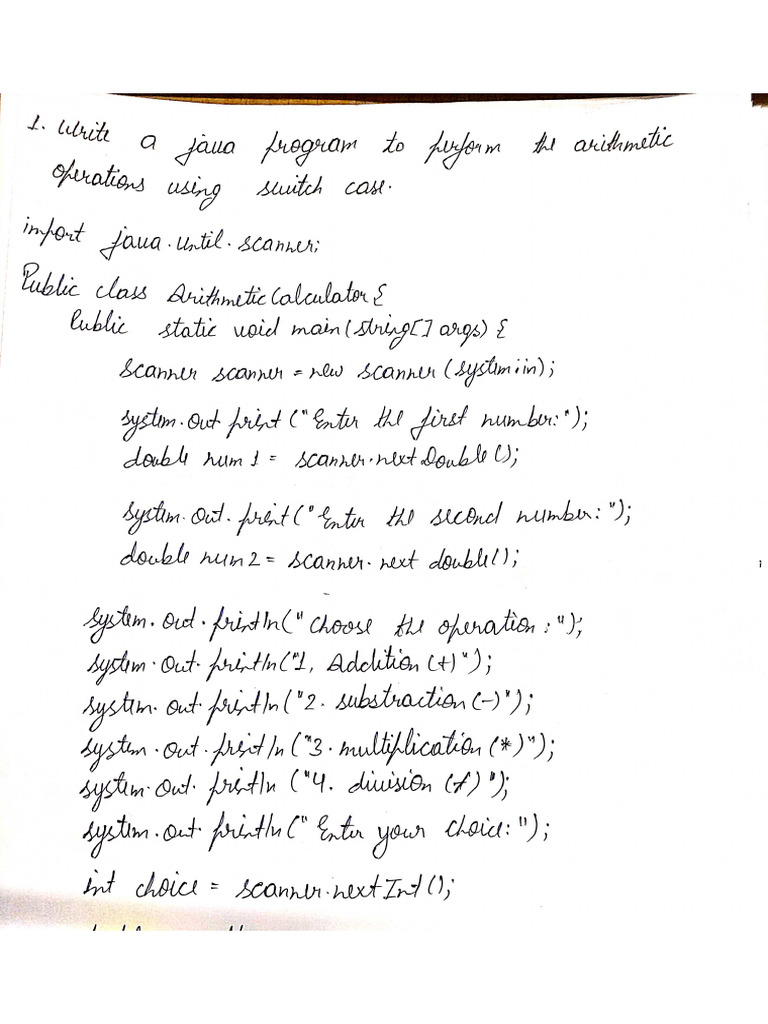 1. Write a java program to perform the arithmetic
operations using switch case.
import java.until.scanner;
Public class ArithmeticCalculator{
Public static void main(string[] args) {
scanner scanner = new scanner (system.in);
system.out print ("Enter the first number:");
double num 1 = scanner.next Double();
system.out.print ("Enter the second number:");
double num 2 = scanner.next double();
system.out.println("choose the operation:");
system.out.println("1, Addition (+)");
system.out.println("2. substraction (-)");
system.out.println("3. multiplication (*)");
system.out.println ("4. division (/)");
system.out.println("Enter your choice:");
int choice = scanner.nextInt();